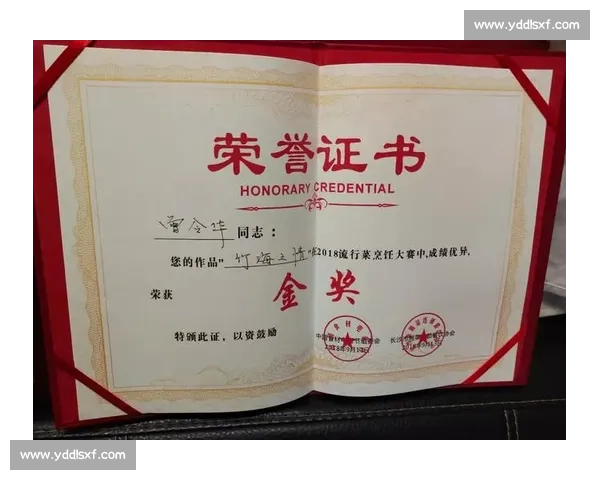 www.yddlsxf.com
荣誉证书
HONORARY CREDENTIAL
曾令华 同志：
您的作品“竹海之情”在2018流行菜烹饪大赛中,成绩优异,
荣获 金奖
特颁此证，以资鼓励
2018年9月
www.yddlsxf.com